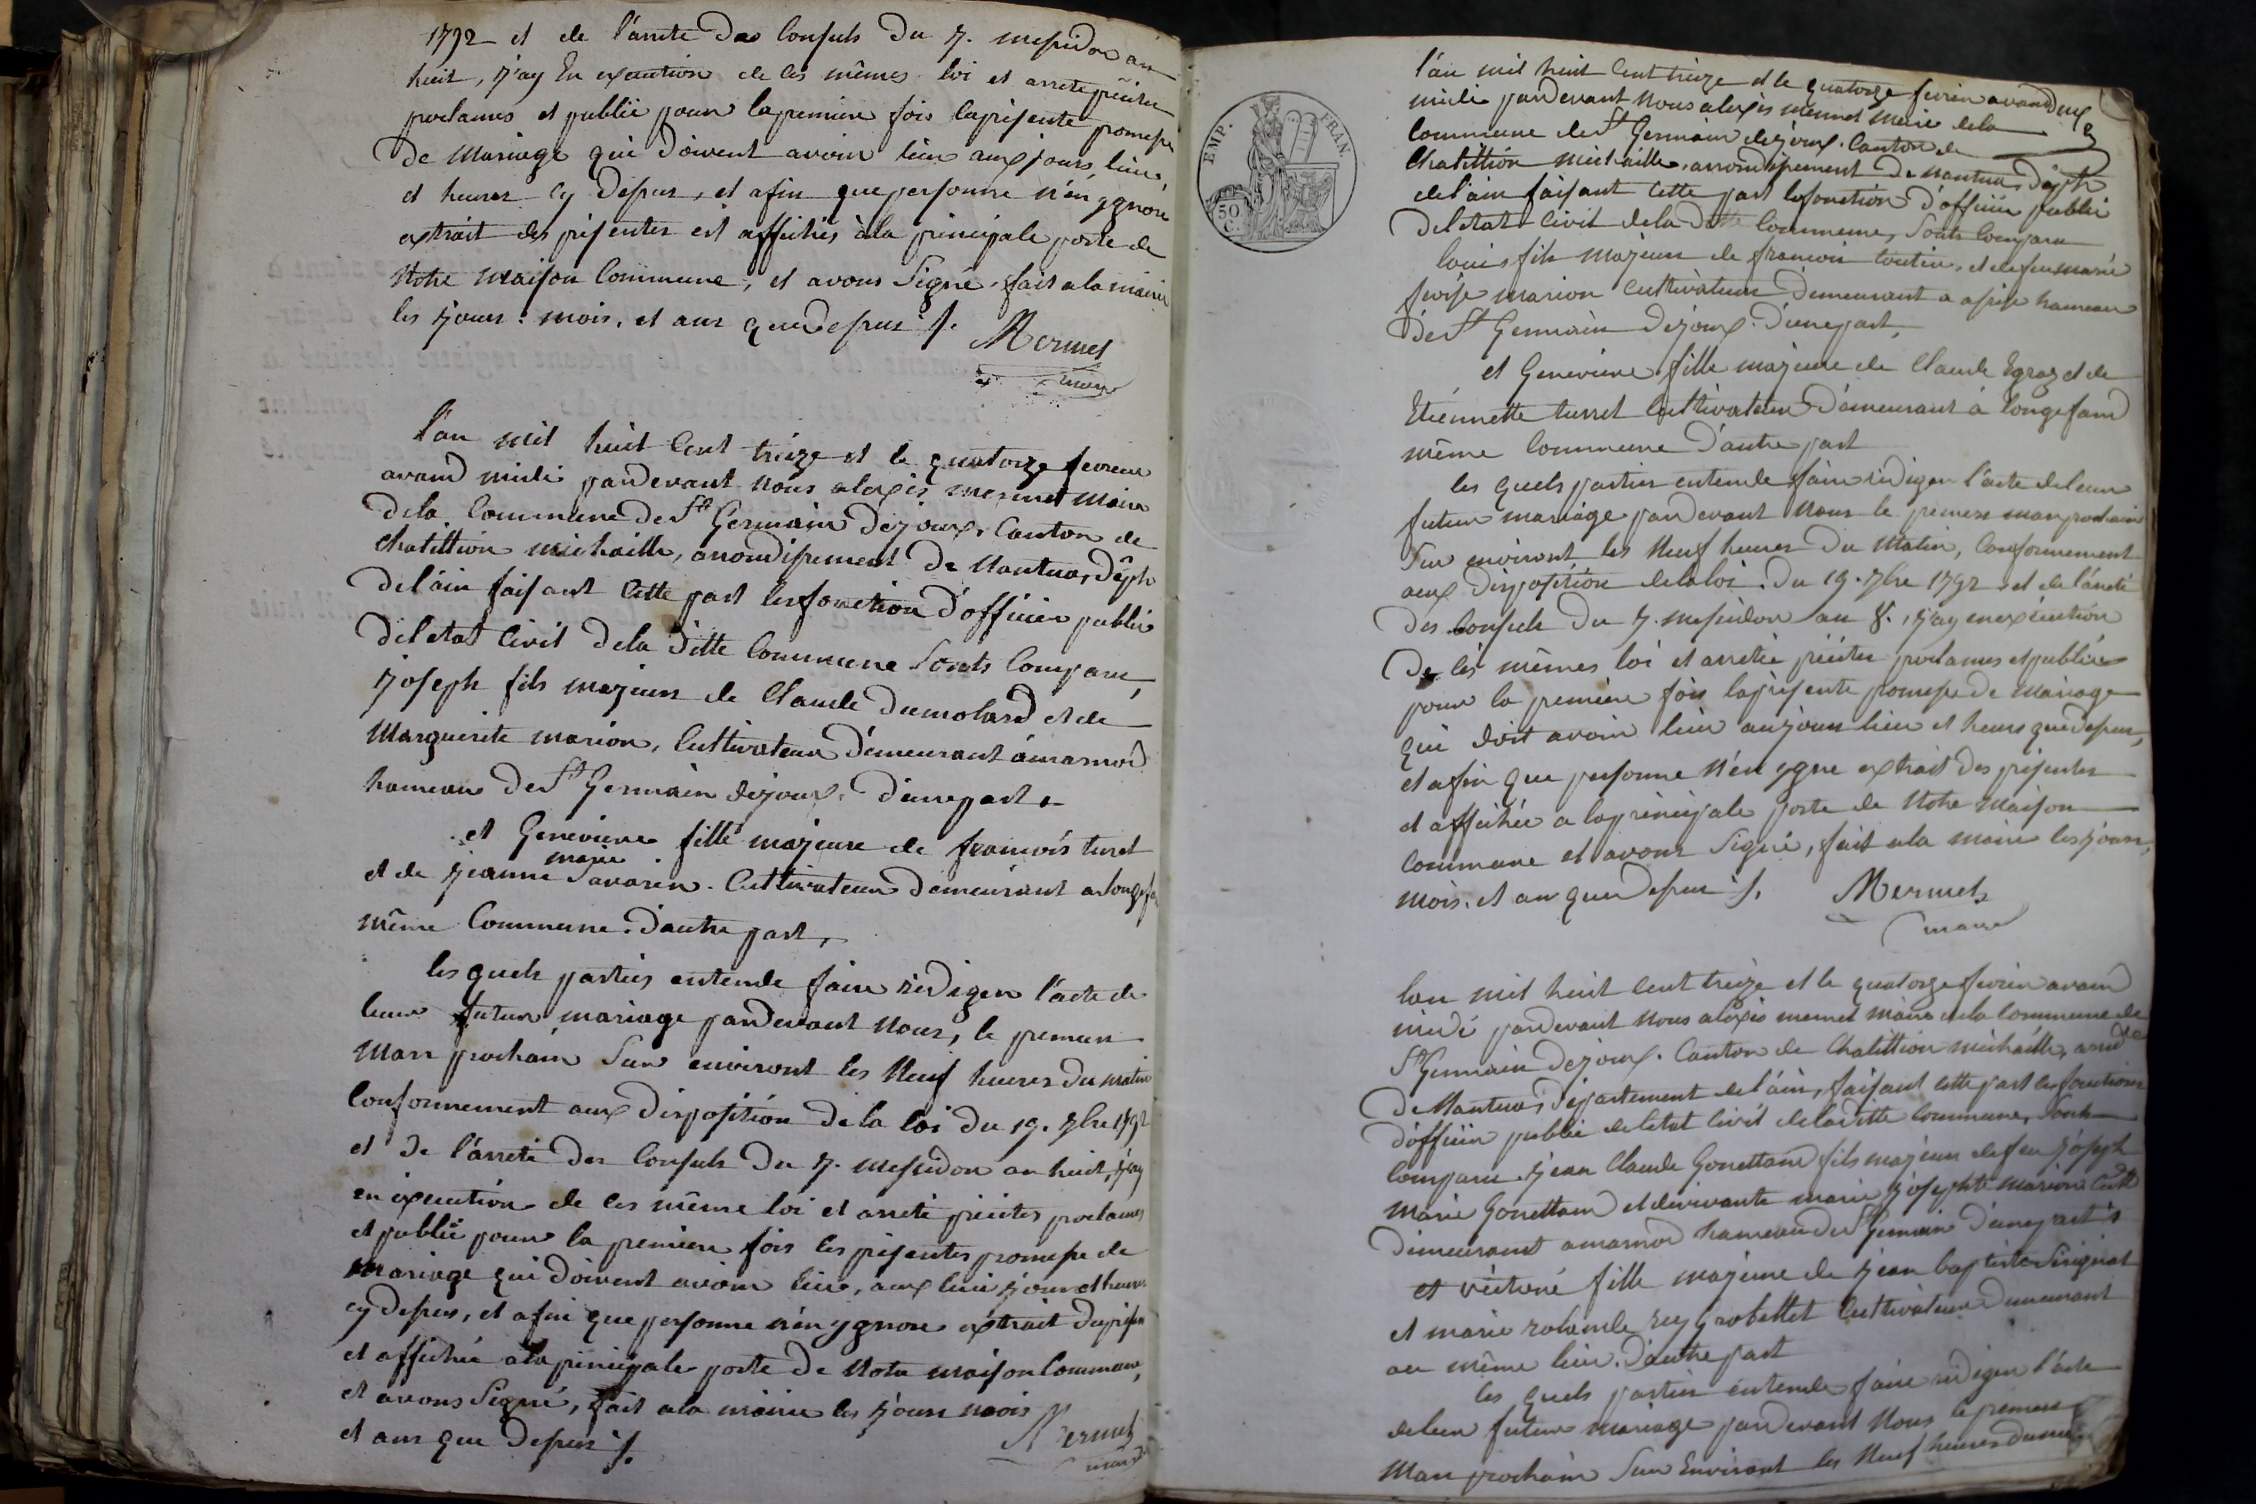 1792 et de l'arrete des Consuls du 7. messidor an
huit, j'ay En execution de ces mêmes loi et arrete précitée
proclames et publié pour la premiere fois la présente promesse
de Mariage qui doivent avoir lieu aux jours, lieu,
et heures cy dessus, et afin que personne n'en ygnore
extrait des présentes est affichés à la principale porte de
Notre maison Commune, et avons Signé, fait a la mairie
les jours: mois, et ans que dessus ./.
Mermet
maire
l'an mil huit Cent treize et le quatorze fevrier
avand midi pardevant nous alexis mermet maire
de la Commune de St Germain dejoux, Canton de
Chatillion michaille, arrondissement de Nantua, Dépt
de l'ain faisant Cette part les fonction d'officier public
de l'etat Civil de la ditte Commune Sonts Comparu,
joseph fils majeur de Claude dumolard et de
Marguerite marion, Cultivateur demeurant à marnod
hameau de St Germain dejoux. d'une part
et Genevieve fille majeure de francois turret
marie
et de jeanne Savarin. Cultivateur demeurant a longefan
même Commune. d'autre part,
les quels parties entende faire rédiger l'acte de
leur futur mariage pardevant Nous, le premier
Mars prochain Sur environt les Neuf heures du matin
Conformement aux disposition de la loi du 19. 7bre 1792
et de l'arreté des Consuls du 7. messidor an huit, j'ay
en execution de ces même loi et arreté précités proclames
et publié pour la premiere fois les présentes promesse de
Mariage qui doivent avoir lieu, aux lieu jour et heures
cy dessus, et afin que personne n'en ygnore extrait des présen
et affichée a la principale porte de Notre maison Commune,
et avons Signé, fait a la mairie les jours mois
et ans que dessus ./.
Mermet
maire
EMP. FRAN.
50 C.
l'an mil huit Cent treize et le quatorze fevrier avand
midi pardevant Nous alexis mermet maire de la
Commune de St Germain dejoux. Canton de
Chatillion michaille, arrondissement de Nantua, Dépt
de l'ain faisant Cette part les fonction d'officier public
de l'etat Civil de la ditte Commune, Sonts Comparu
louis fils majeur de francois toutin, et de feu marie
josephe marion Cultivateur demeurant a hameau
de St Germain dejoux. d'une part,
et Genevieve fille majeure de Claude Egraz et de
Etiennette turret Cultivateur demeurant à longefand
même Commune d'autre part
les quels parties entende faire rédiger l'acte de leur
futur mariage pardevant Nous le premier mars prochain
Sur environt les Neuf heures du Matin, Conformement
aux disposition de la loi. du 19. 7bre 1792 et de l'arreté
des Consuls du 7. messidor an 8., j'ay en execution
de ces mêmes loi et arretée précités proclames et publiée
pour la premiere fois la présente promesse de mariage
qui doit avoir lieu aux jours lieu et heures que dessus,
et afin que personne N'en ygne extrait des présentes
et affichée a la principale porte de Notre Maison
Commune et avons Signé, fait a la mairie les jours,
mois. et an que dessus ./.
Mermet
maire
l'an mil huit Cent treize et le quatorze fevrier avand
midi pardevant Nous alexis mermet maire de la Commune de
St Germain dejoux. Canton de Chatillion michaille, arrondt
de Nantua, Département de l'ain, faisant Cette part les fonctions
d'officier public de l'etat Civil de la ditte Commune, Sonts
Comparu jean Claude Gonettand fils majeur de feu joseph
marie Gonettand et de vivante marie josephte marion Cultr
demeurant a marnod hameau de St Germain d'une part
et fille majeure de jean baptiste
et marie rolande rey Grobellet Cultivateur demeurant
au même lieu. d'autre part
les quels parties entende faire rédiger l'acte
de leur futur mariage pardevant Nous le premier
Mars prochain Sur environt les Neuf heures du matin